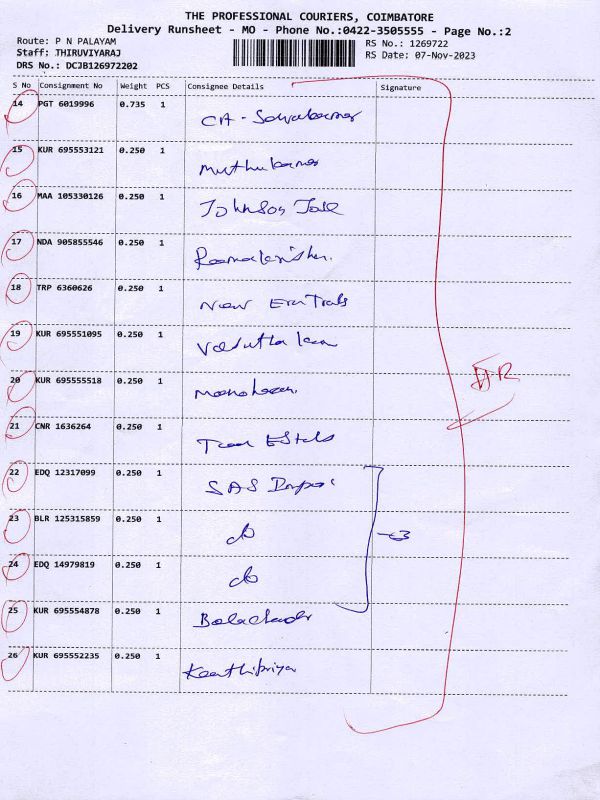 THE PROFESSIONAL COURIERS, COIMBATORE
Delivery Runsheet - MO - Phone No.:0422-3505555 - Page No.:2
Route: P N PALAYAM
RS No.: 1269722
Staff: THIRUVIYARAJ
RS Date: 07-Nov-2023
DRS No.: DCJB126972202
S No Consignment No Weight PCS Consignee Details Signature
14 PGT 6019996 0.735 1 CA -
15 KUR 695553121 0.250 1
16 MAA 105330126 0.250 1 Johnson
17 NDA 905855546 0.250 1
18 TRP 6360626 0.250 1 New Era
19 KUR 695551095 0.250 1
20 KUR 695555518 0.250 1
21 CNR 1636264 0.250 1
22 EDQ 12317099 0.250 1 SAS
23 BLR 125315859 0.250 1 do
24 EDQ 14979819 0.250 1 do
25 KUR 695554878 0.250 1
26 KUR 695552235 0.250 1 Keerthipriya